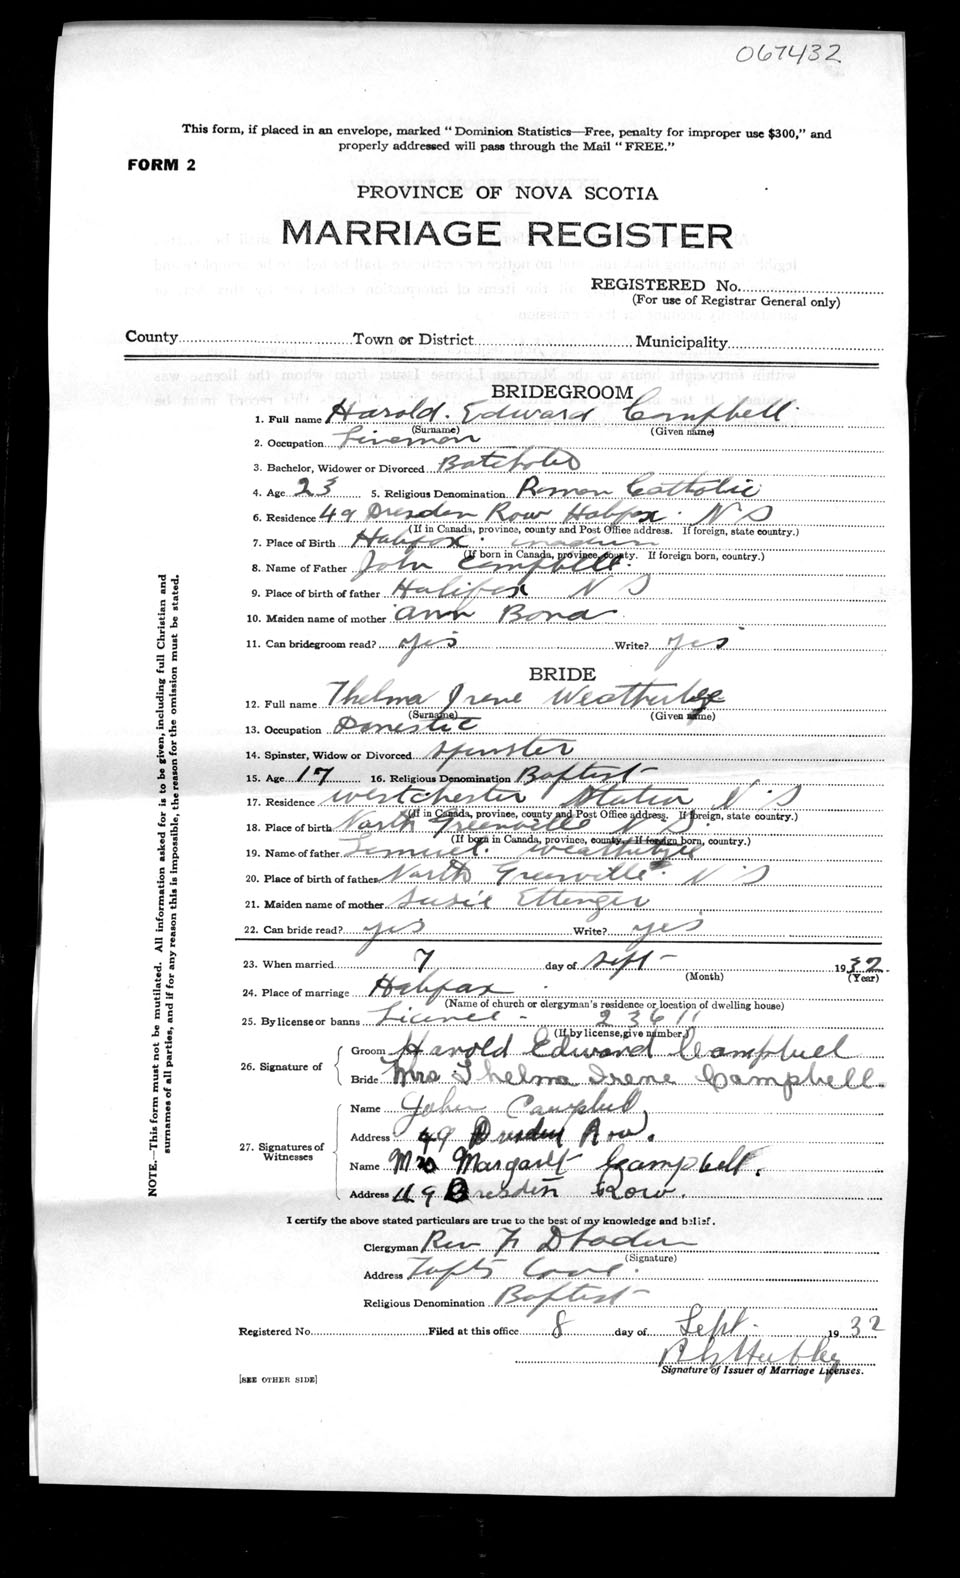 067432
This form, if placed in an envelope, marked " Dominion Statistics—Free, penalty for improper use $300," and
properly addressed will pass through the Mail " FREE."
FORM 2
PROVINCE OF NOVA SCOTIA
MARRIAGE REGISTER
REGISTERED No.
(For use of Registrar General only)
County Town or District Municipality
BRIDEGROOM
1. Full name Harold. Edward Campbell
(Surname) (Given name)
2. Occupation Lineman
3. Bachelor, Widower or Divorced
4. Age 23 5. Religious Denomination Roman Catholic
6. Residence 49 Dresden Row Halifax. N S
(If in Canada, province, county and Post Office address. If foreign, state country.)
7. Place of Birth Halifax.
(If born in Canada, province, county. If foreign born, country.)
8. Name of Father John Campbell.
9. Place of birth of father Halifax N S
10. Maiden name of mother Ann Bond
11. Can bridegroom read? yes Write? yes
BRIDE
12. Full name Thelma Irene Weatherbee
(Surname) (Given name)
13. Occupation Domestic
14. Spinster, Widow or Divorced Spinster
15. Age 17 16. Religious Denomination Baptist
17. Residence Westchester Station N S
(If in Canada, province, county and Post Office address. If foreign, state country.)
18. Place of birth North Greenville N S.
(If born in Canada, province, county. If foreign born, country.)
19. Name of father Lemuel. Weatherbee
20. Place of birth of father North Greenville. N S
21. Maiden name of mother Susie Ettinger
22. Can bride read? yes Write? yes
23. When married 7 day of Sept 1932
(Month) (Year)
24. Place of marriage Halifax
(Name of church or clergyman's residence or location of dwelling house)
25. By license or banns Licence - 23611
(If by license, give number.)
26. Signature of
Groom Harold Edward Campbell
Bride Mrs Thelma Irene Campbell.
27. Signatures of Witnesses
Name John Campbell
Address 49 Dresden Row.
Name Mrs Margaret Campbell.
Address 49 Dresden Row.
I certify the above stated particulars are true to the best of my knowledge and belief.
Clergyman Rev
(Signature)
Address Tufts Cove.
Religious Denomination Baptist
Registered No. Filed at this office 8 day of Sept. 1932
Signature of Issuer of Marriage Licenses.
[SEE OTHER SIDE]
NOTE.—This form must not be mutilated. All information asked for is to be given, including full Christian and
surnames of all parties, and if for any reason this is impossible, the reason for the omission must be stated.